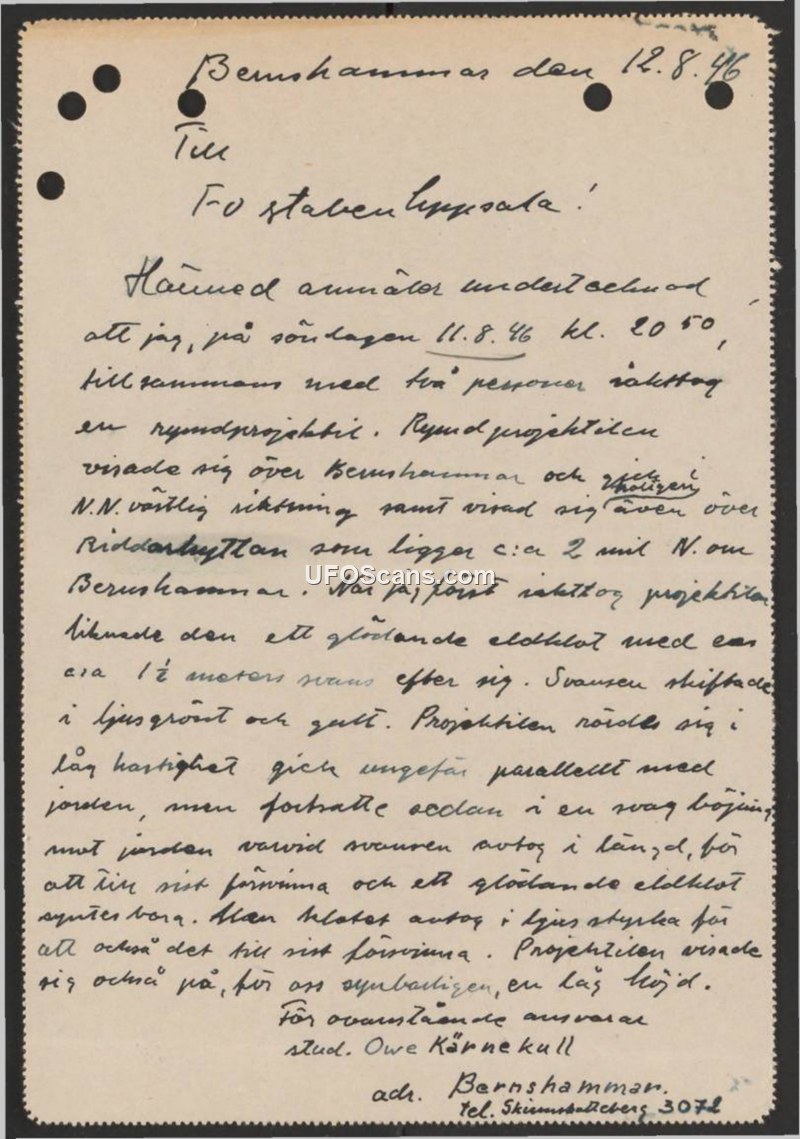 Bernshammar den 12.8.46
Till
Fo staben Uppsala!
Härmed anmäler undertecknad
att jag, på söndagen 11.8.46 kl. 20 50,
tillsammans med två personer iakttog
en rymdprojektil. Rymdprojektilen
visade sig över Bernshammar och gick i
N.N. västlig riktning samt visad sig troligen även över
Riddarhyttan som ligger c:a 2 mil N. om
Bernshammar. När jag först iakttog projektilen
liknade den ett glödande eldklot med en
c:a 1½ meters svans efter sig. Svansen skiftade
i ljusgrönt och gult. Projektilen rörde sig i
låg hastighet gick ungefär parallellt med
jorden, men fortsatte sedan i en svag böjning
mot jorden varvid svansen avtog i längd, för
att till sist försvinna och ett glödande eldklot
syntes bara. Men klotet avtog i ljusstyrka för
att också det till sist försvinna. Projektilen visade
sig också på, för oss synbarligen, en låg höjd.
För ovanstående ansvarar
stud. Owe Kärnekull
adr. Bernshammar.
tel. Skinnskatteberg 3072
UFOScans.com